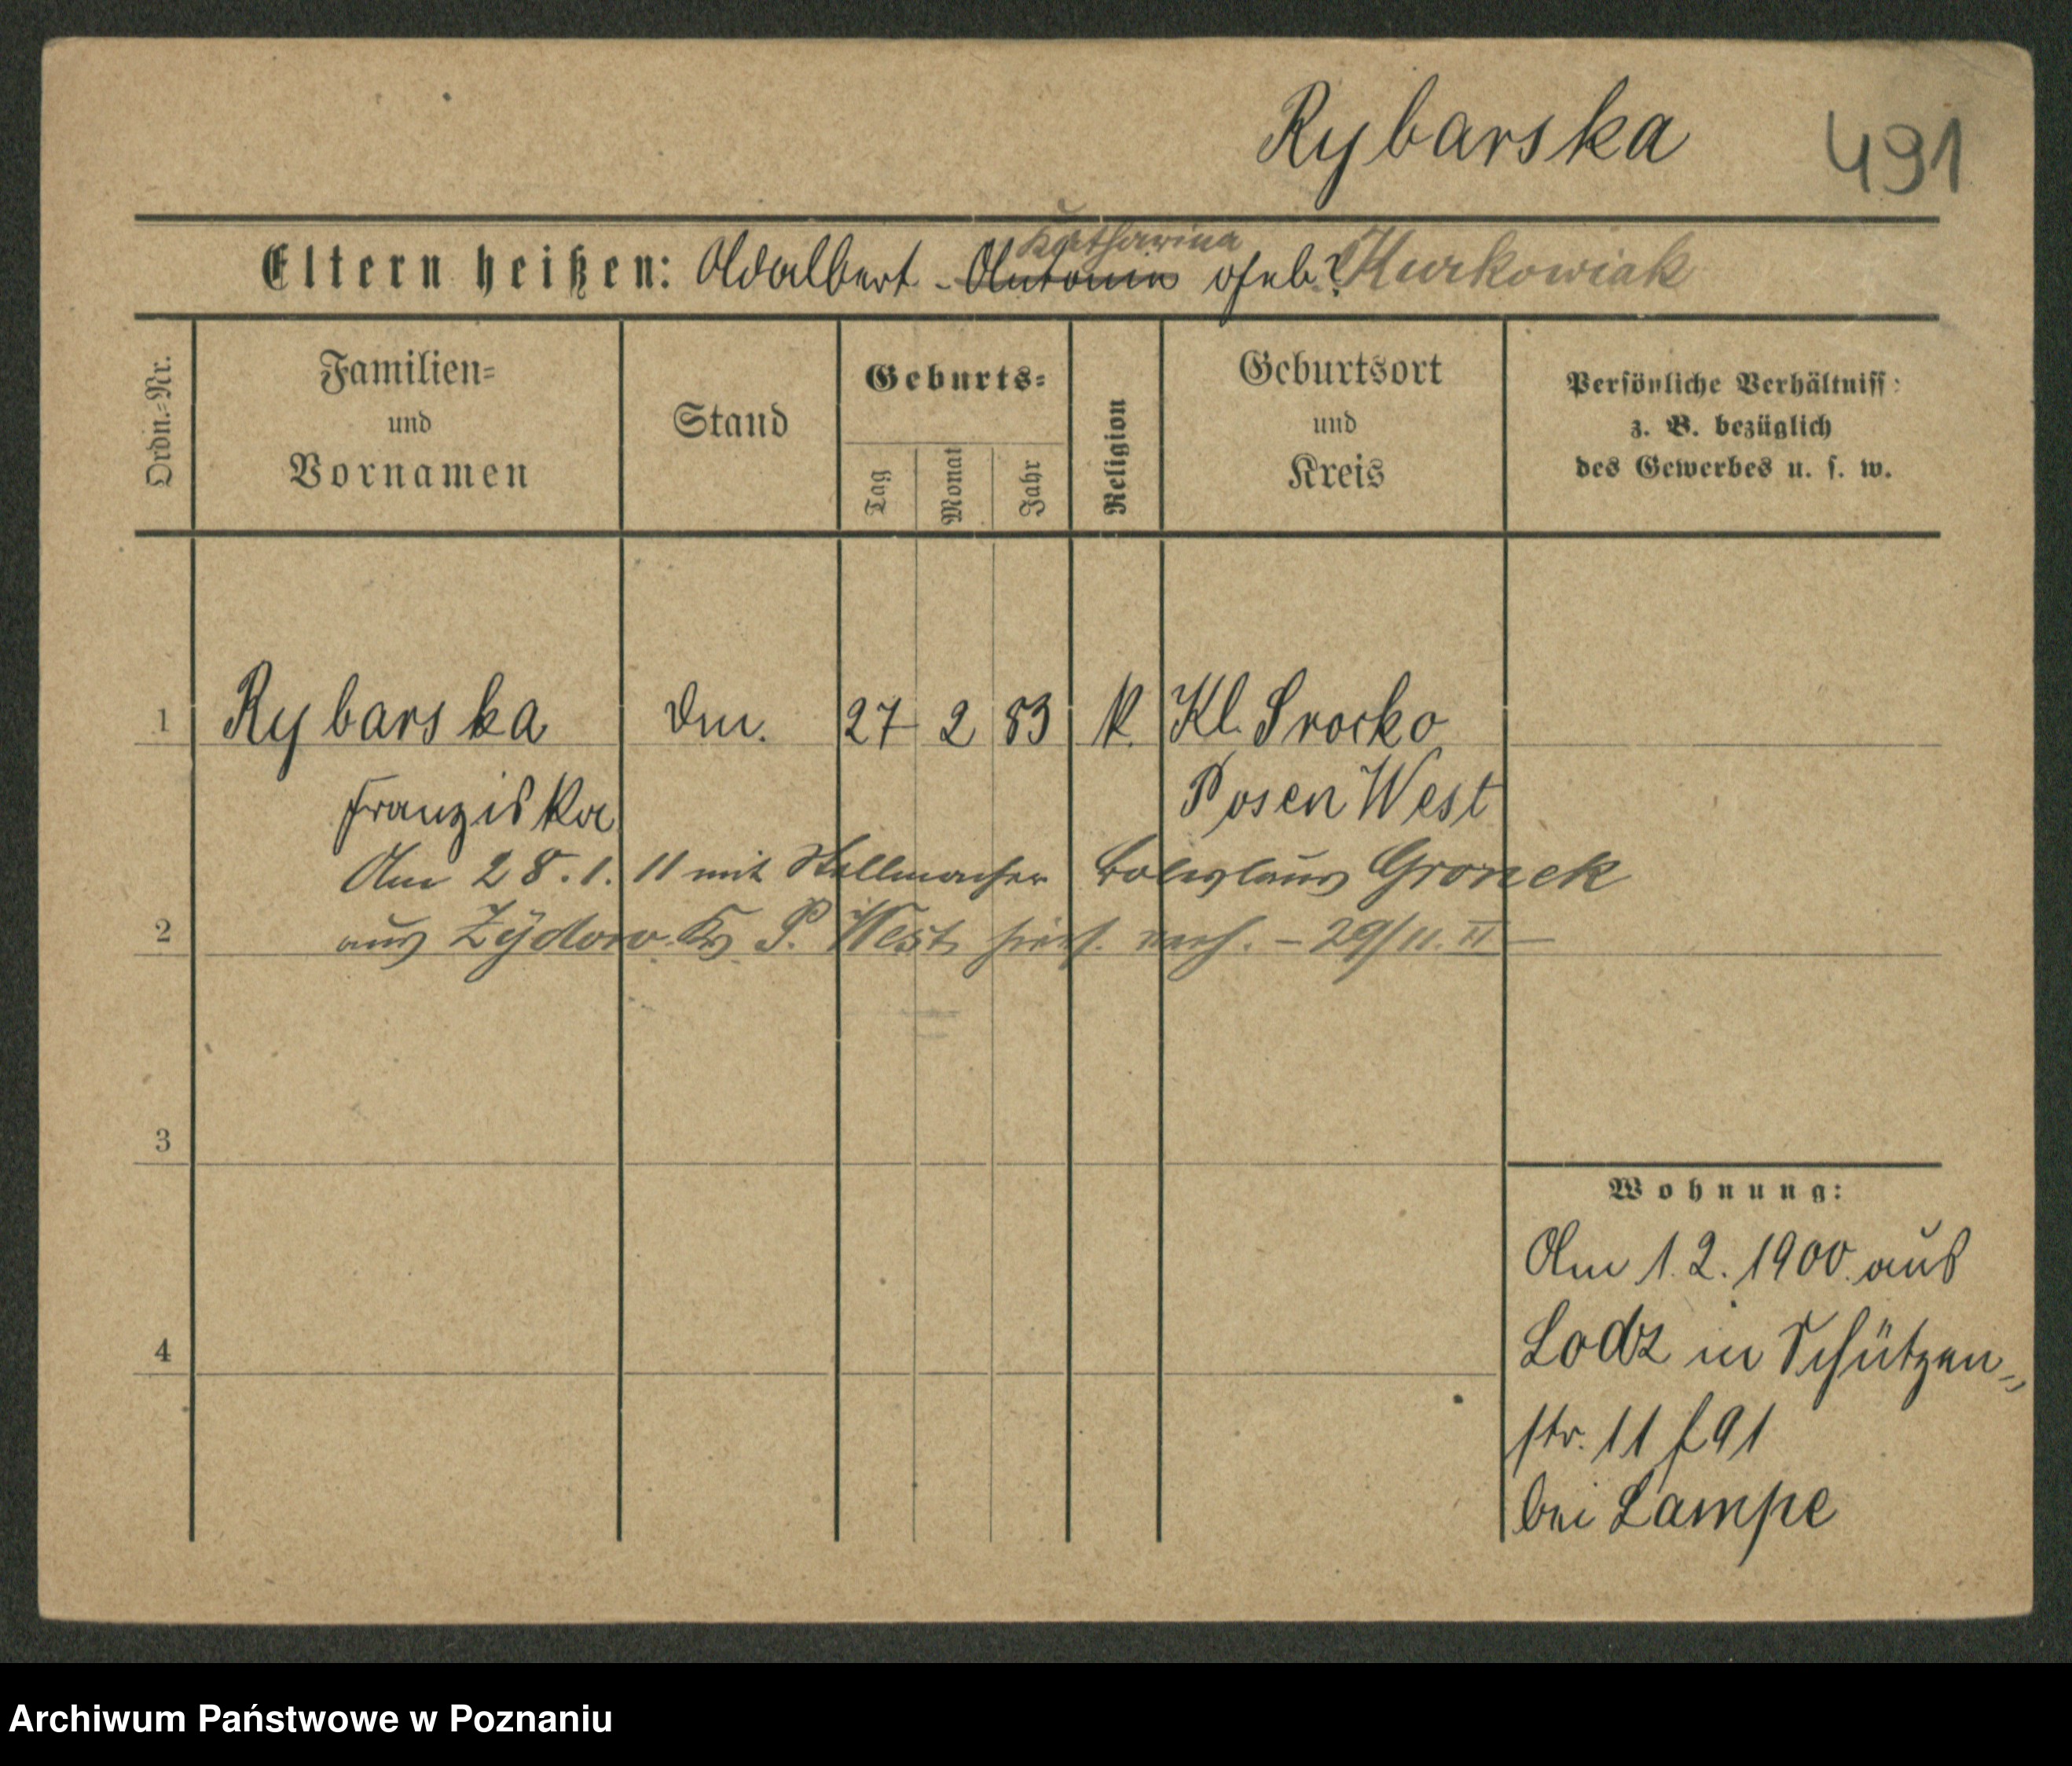 Rybarska 491
Eltern heißen: Adalbert - Antonin Katharina geb? Kurkowiak
Ordn.-Nr.
Familien=
und
Vornamen
Stand
Geburts=
Tag
Monat
Jahr
Religion
Geburtsort
und
Kreis
Persönliche Verhältniss
z. B. bezüglich
des Gewerbes u. s. w.
1 Rybarska 27 2 83 K. Kl. Srocko
Franziska Posen West
Am 28.1.11 mit Stellmacher Boleslaus Gronek
2 aus Zydowo Kr P. West
3
4
Wohnung:
Am 1.2.1900 aus
Lodz in Schützen„
str. 11 f 91
bei Lampe
Archiwum Państwowe w Poznaniu